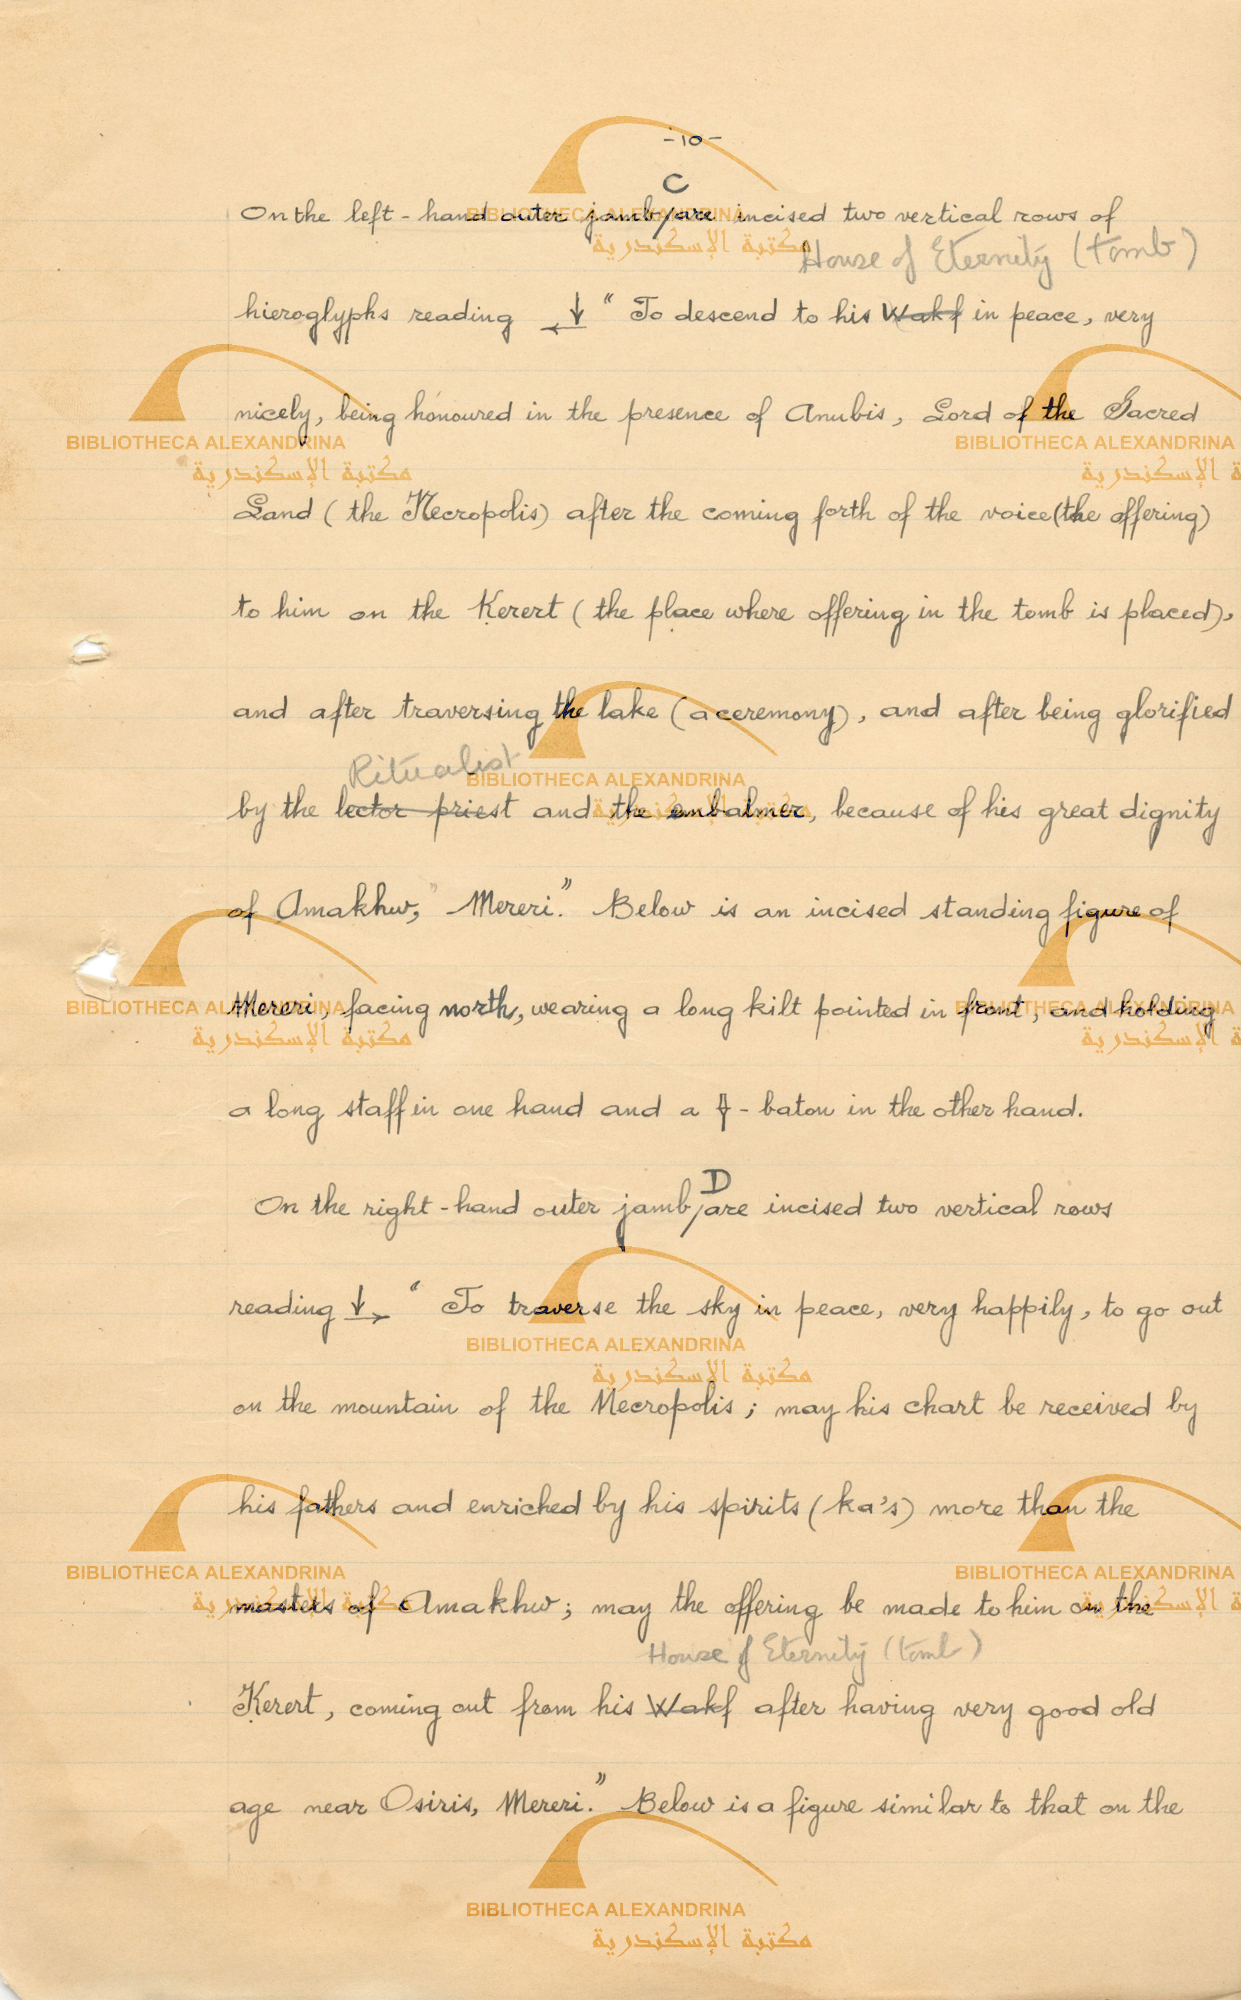 -10-
C
On the left-hand outer jamb/are incised two vertical rows of
House of Eternity (tomb)
hieroglyphs reading ←↓ "To descend to his Wakf in peace, very
nicely, being honoured in the presence of Anubis, Lord of the Sacred
Land (the Necropolis) after the coming forth of the voice (the offering)
to him on the Kerert (the place where offering in the tomb is placed),
and after traversing the lake (a ceremony), and after being glorified
Ritualist
by the lector priest and the embalmer, because of his great dignity
of Amakhw," Mereri." Below is an incised standing figure of
Mereri, facing north, wearing a long kilt pointed in front, and holding
a long staff in one hand and a -baton in the other hand.
D
On the right-hand outer jamb/are incised two vertical rows
reading ↓→ "To traverse the sky in peace, very happily, to go out
on the mountain of the Necropolis; may his chart be received by
his fathers and enriched by his spirits (ka's) more than the
masters of Amakhw; may the offering be made to him on the
House of Eternity (tomb)
Kerert, coming out from his Wakf after having very good old
age near Osiris, Mereri." Below is a figure similar to that on the
BIBLIOTHECA ALEXANDRINA
مكتبة الإسكندرية